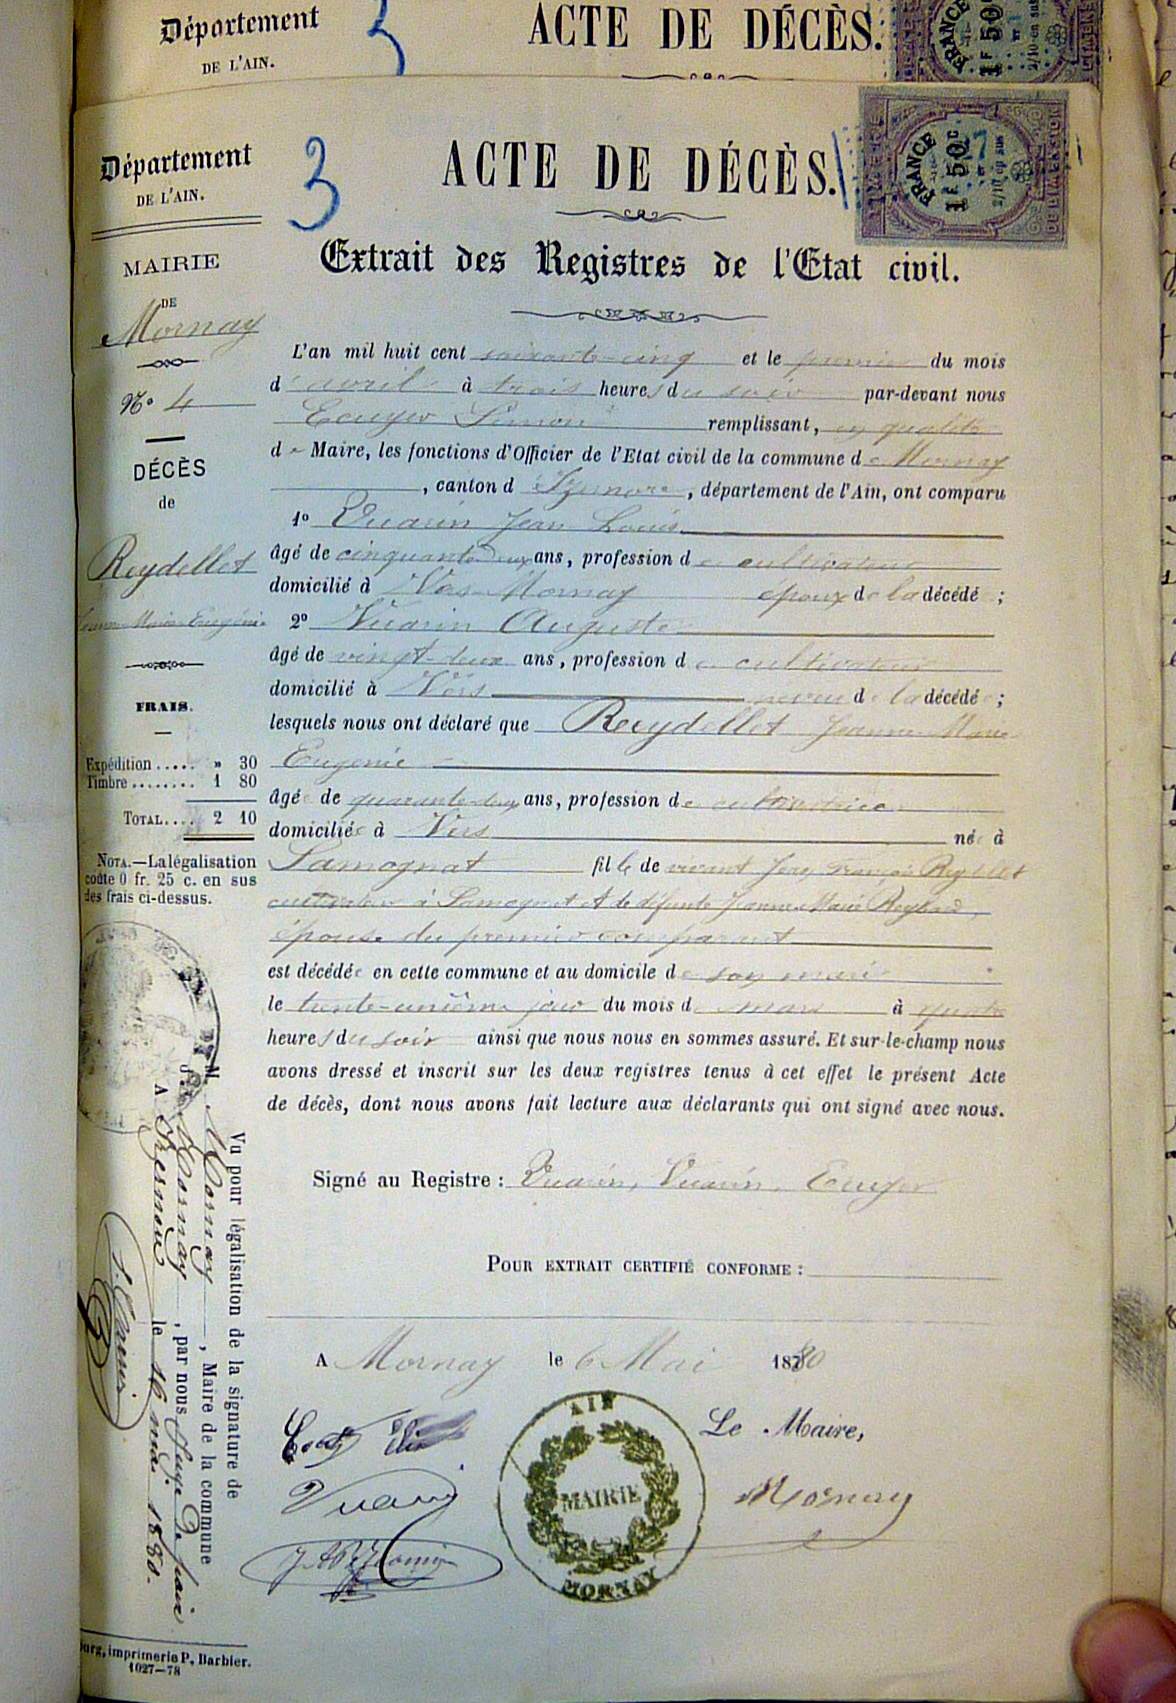 Département
DE L'AIN.
3
ACTE DE DÉCÈS.
FRANCE
1F 50c.
2/10 en sus
Département
DE L'AIN.
3
ACTE DE DÉCÈS.
FRANCE
1F 50c.
2/10 en sus
Extrait des Registres de l'Etat civil.
MAIRIE
DE
Mornay
N° 4
DÉCÈS
de
Reydellet
Jeanne Marie Eugénie
FRAIS.
Expédition ..... » 30
Timbre ........ 1 80
TOTAL.... 2 10
NOTA.—La légalisation
coûte 0 fr. 25 c. en sus
des frais ci-dessus.
L'an mil huit cent soixante-cinq et le premier du mois
d'avril à trois heures du soir par-devant nous
Ecuyer Simon remplissant, en qualité
de Maire, les fonctions d'Officier de l'Etat civil de la commune de Mornay
, canton d'Izernore, département de l'Ain, ont comparu
1° Vuarin Jean Louis
âgé de cinquante-deux ans, profession de cultivateur
domicilié à Vers Mornay époux de la décédée ;
2° Vuarin Auguste
âgé de vingt-deux ans, profession de cultivateur
domicilié à Vers neveu de la décédée ;
lesquels nous ont déclaré que Reydellet Jeanne Marie
Eugénie
âgée de quarante-deux ans, profession de cultivatrice
domiciliée à Vers née à
Samognat fille de vivant Jean François Reydellet
cultivateur à Samognat et de défunte Jeanne Marie
épouse du premier comparant
est décédée en cette commune et au domicile de son mari
le trente-unième jour du mois de mars à quatre
heures du soir ainsi que nous nous en sommes assuré. Et sur-le-champ nous
avons dressé et inscrit sur les deux registres tenus à cet effet le présent Acte
de décès, dont nous avons fait lecture aux déclarants qui ont signé avec nous.
Signé au Registre : Vuarin, Vuarin, Ecuyer
POUR EXTRAIT CERTIFIÉ CONFORME :
A Mornay le 6 Mai 1880
Le Maire,
Mornay
Vuarin
AIN
MAIRIE
MORNAY
Vu pour légalisation de la signature de
M Mornay, Maire de la commune
de Mornay, par nous Juge de paix
A Izernore le 16 mai 1880.
Bourg, imprimerie P. Barbier.
1027—78